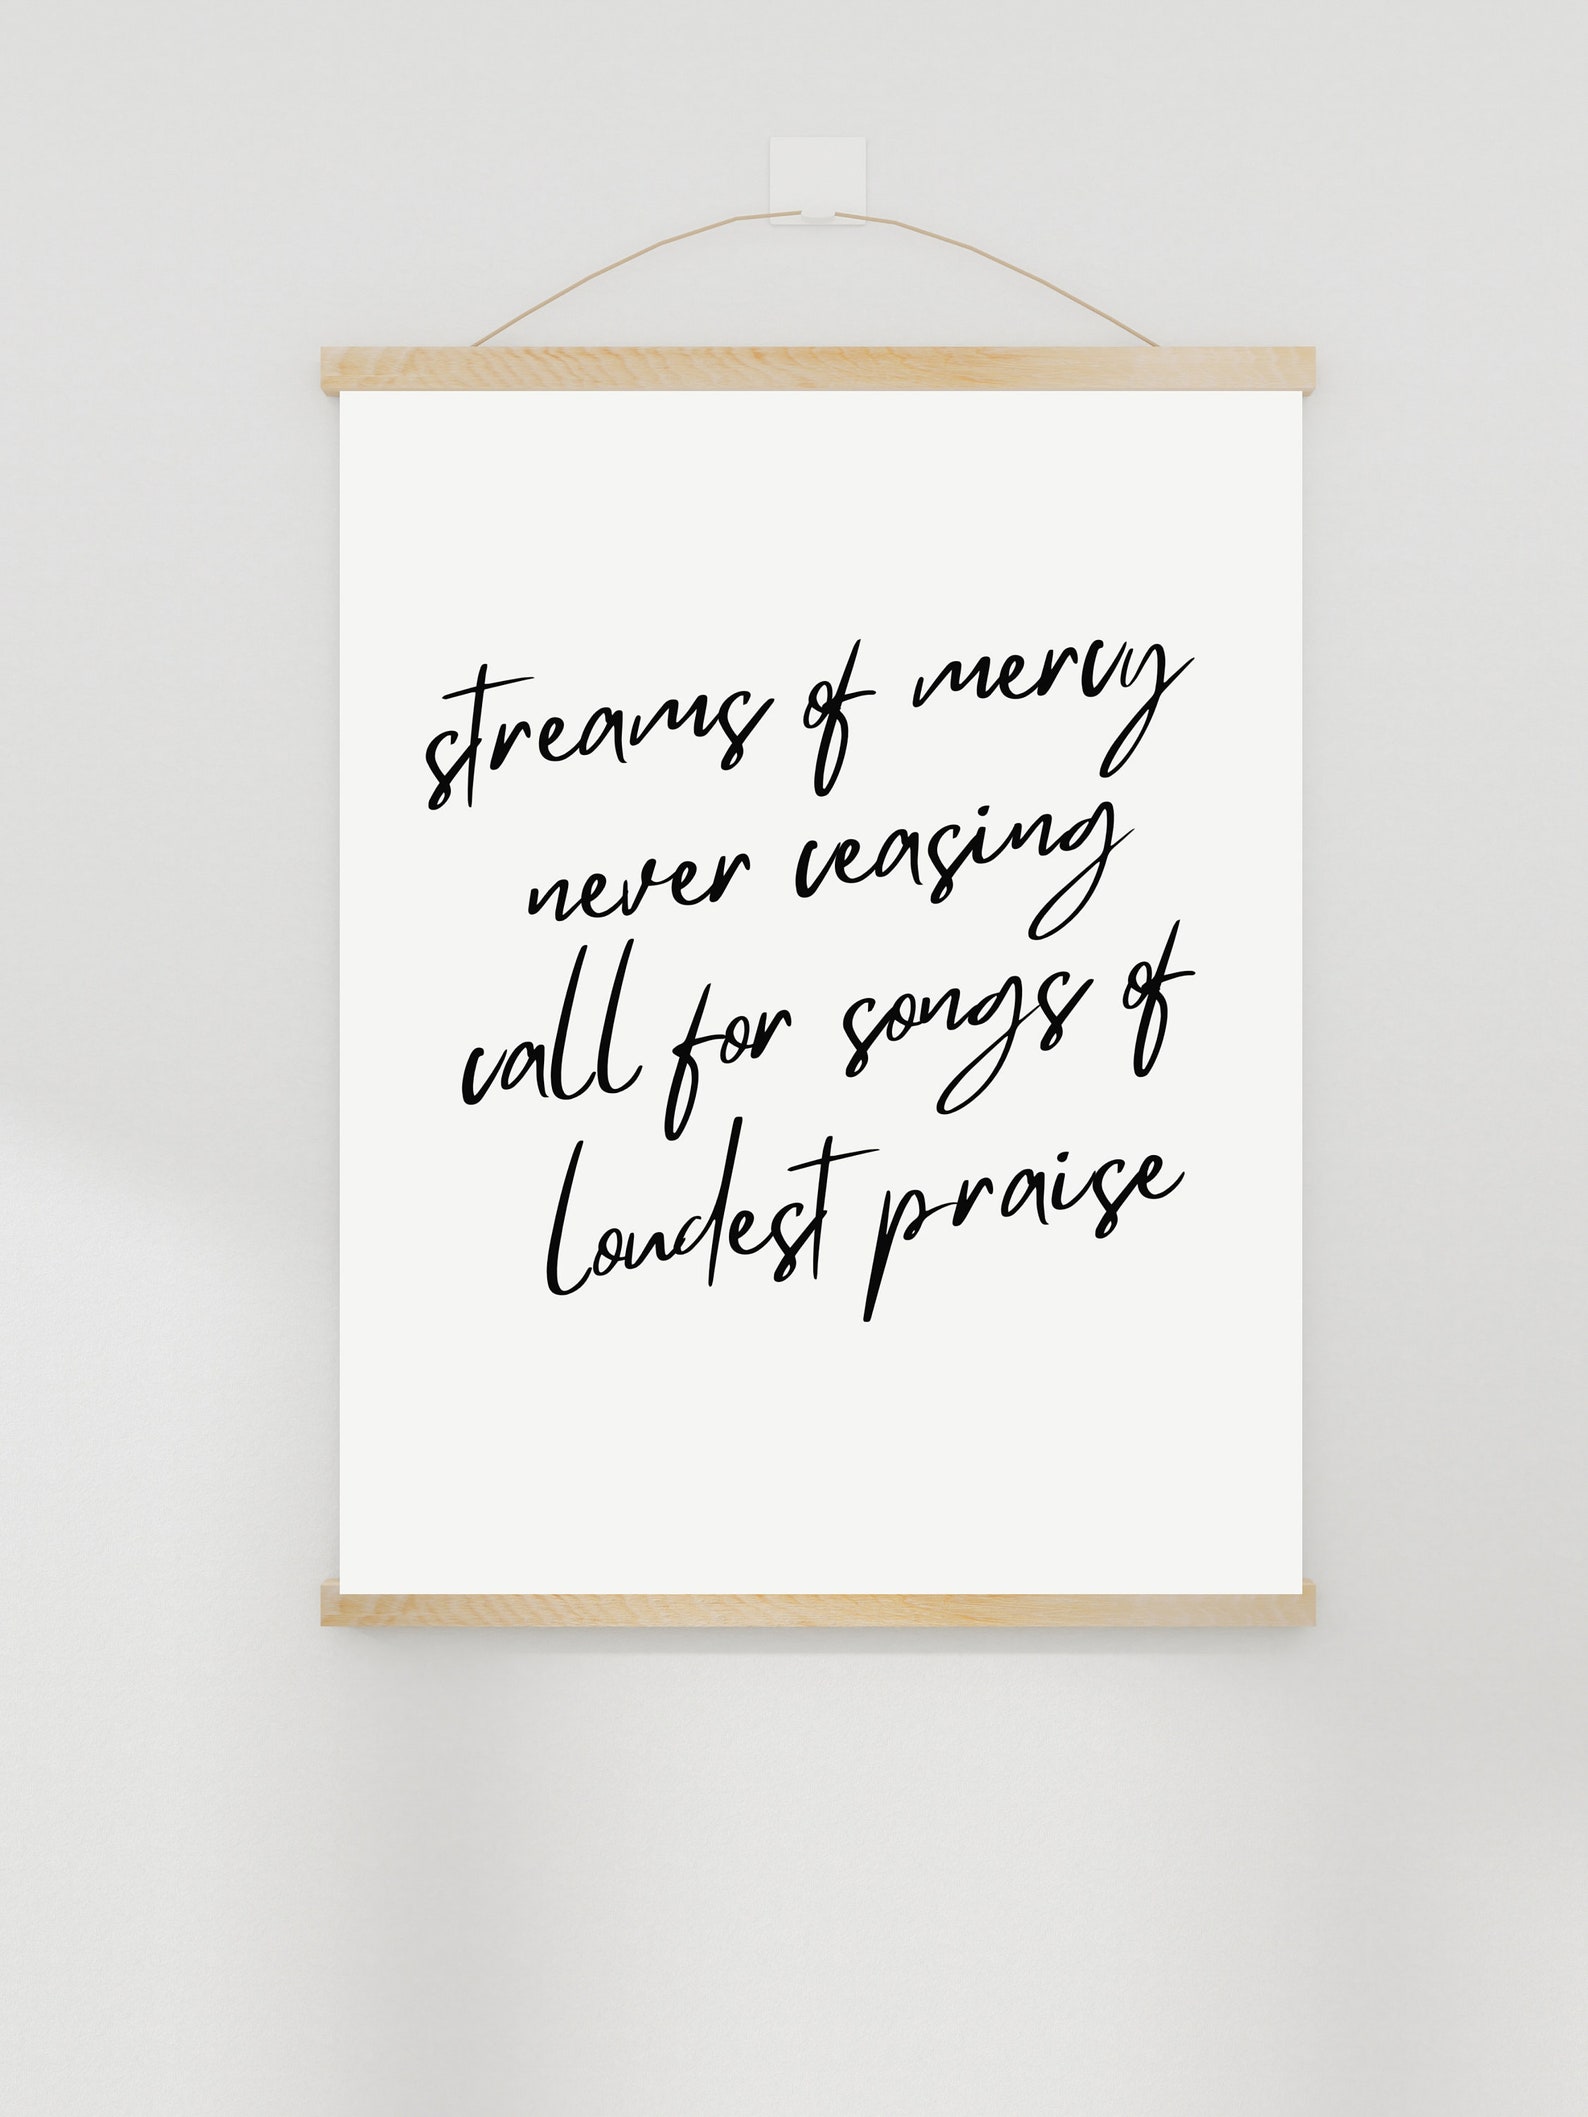 streams of mercy
never ceasing
call for songs of
loudest praise